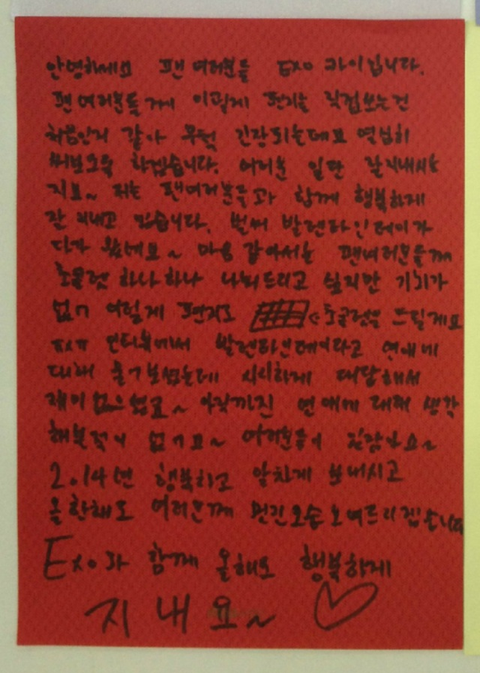 안녕하세요 팬 여러분들 EXO 카이입니다.
팬 여러분들께 이렇게 편지를 직접쓰는건
처음인거 같아 무척 긴장되는데요 열심히
써보도록 하겠습니다. 여러분 일단 잘지내시는
지요~ 저는 팬여러분들과 함께 행복하게
잘 지내고 있습니다. 벌써 발렌타인데이가
다가 왔네요~ 마음 같아서는 팬여러분들께
초콜렛 하나하나 나눠드리고 싶지만 기회가
없어 이렇게 편지로 초콜렛을 드릴게요
인터뷰에서 발렌타인데이라고 연애에
대해 물어보셨는데 시시하게 대답해서
재미없으셨죠~ 아직까진 연애에 대해 생각
해본적이 없어요~ 여러분들이 있잖아요~
2014년 행복하고 알차게 보내시고
올 한해도 여러분께 멋진모습 보여드리겠습니다
EXO와 함께 올해도 행복하게
지내요~